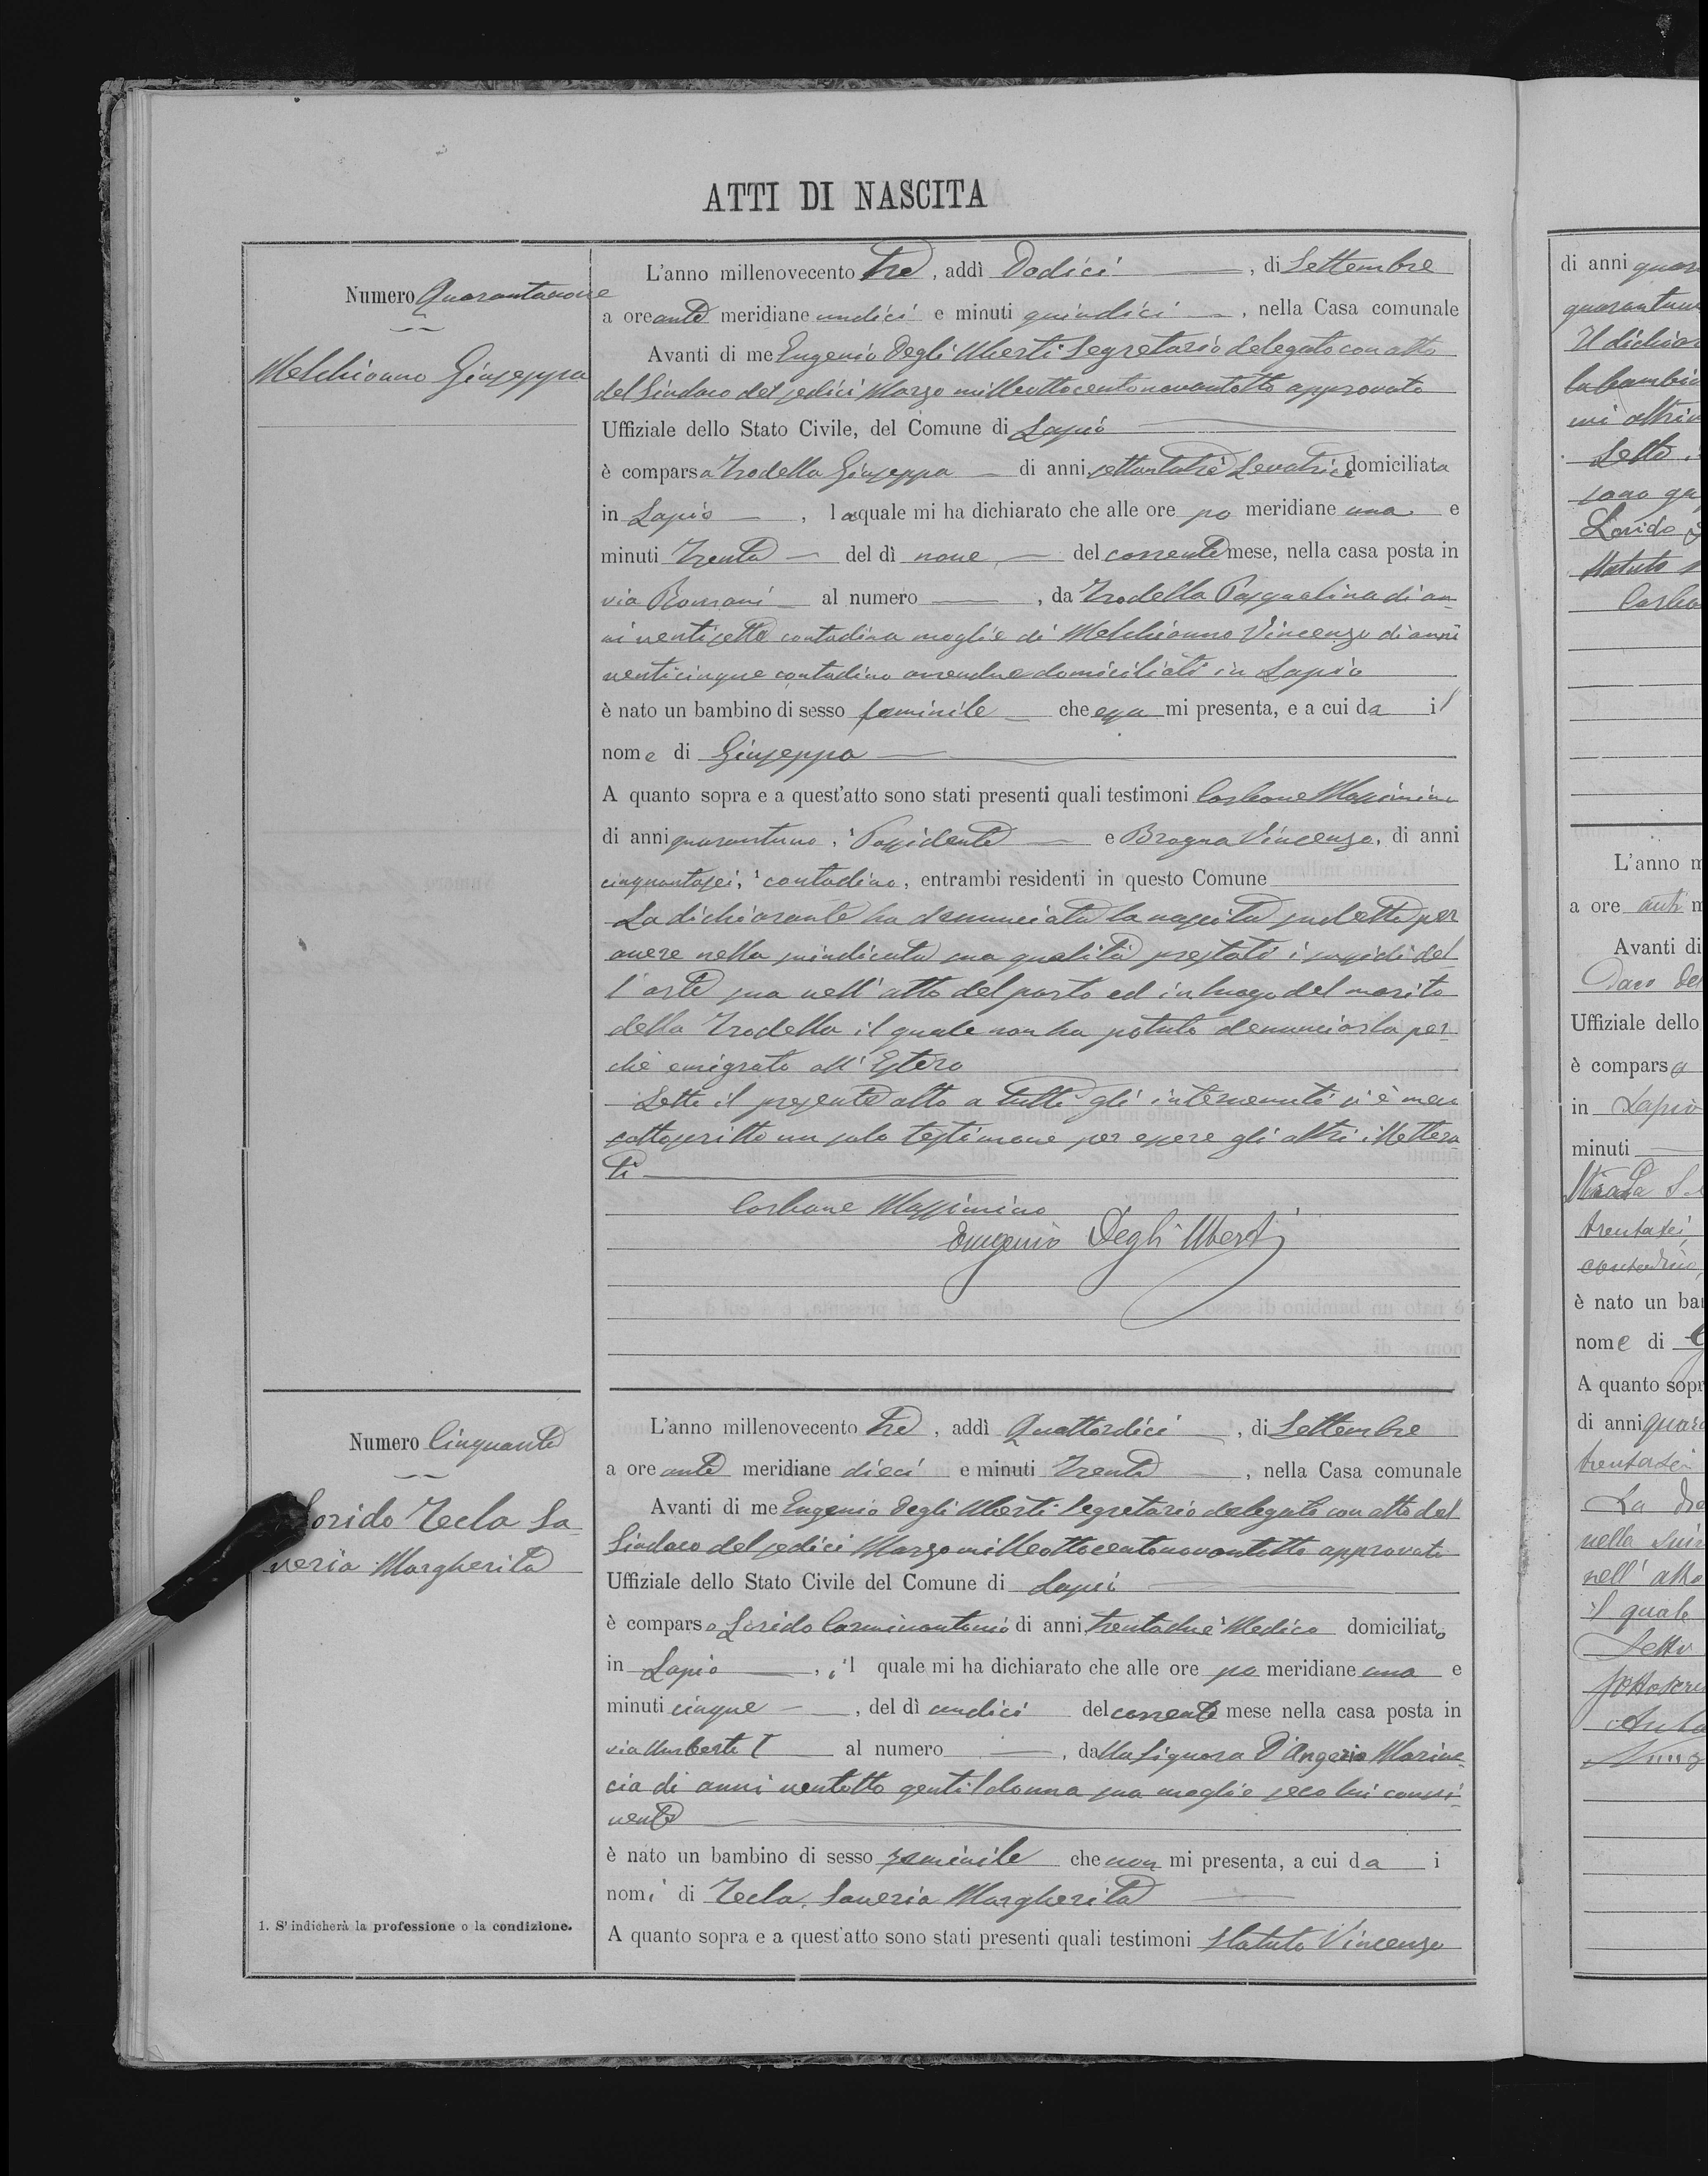 ATTI DI NASCITA
Numero Quarantanove
Melchionno Giuseppa
L'anno millenovecento tre, addì Dodici, di Settembre
a ore ante meridiane undici e minuti quindici, nella Casa comunale
Avanti di me Eugenio Degli Uberti Segretario delegato con atto
del Sindaco del sedici Marzo milleottocentonovantotto approvato
Uffiziale dello Stato Civile, del Comune di Lapio
è comparsa Trodella Giuseppa di anni settantatre Levatrice domiciliata
in Lapio, la quale mi ha dichiarato che alle ore po meridiane una e
minuti trenta del dì nove del corrente mese, nella casa posta in
via Romani al numero, da Trodella Pasqualina di an-
ni ventisette contadina moglie di Melchionno Vincenzo di anni
venticinque contadino amendue domiciliati in Lapio
è nato un bambino di sesso feminile che essa mi presenta, e a cui da il
nome di Giuseppa
A quanto sopra e a quest'atto sono stati presenti quali testimoni Carbone Massimino
di anni quarantuno, Possidente e Bragna Vincenzo, di anni
cinquantasei, contadino, entrambi residenti in questo Comune
La dichiarante ha denunciata la nascita sudetta per
avere nella suindicata sua qualità prestati i sussidi del-
l'arte sua nell'atto del parto ed in luogo del marito
della Trodella il quale non ha potuto denunciarla per-
chè emigrato all'Estero
Letto il presente atto a tutti gli intervenuti si è meco
sottoscritto un solo testimone per essere gli altri illettera
ti
Carbone Massimino
Eugenio Degli Uberti
Numero Cinquanta
Lorido Tecla Sa-
veria Margherita
L'anno millenovecento tre, addì Quattordici, di Settembre
a ore ante meridiane dieci e minuti trenta, nella Casa comunale
Avanti di me Eugenio Degli Uberti Segretario delegato con atto del
Sindaco del sedici Marzo milleottocentonovantotto approvato
Uffiziale dello Stato Civile del Comune di Lapio
è comparso Lorido Carminantonio di anni trentadue Medico domiciliato
in Lapio, il quale mi ha dichiarato che alle ore po meridiane una e
minuti cinque, del dì undici del corrente mese nella casa posta in
via Umberto I al numero, dalla Signora Marine-
cia di anni ventotto gentildonna sua moglie seco lui convi-
vente
è nato un bambino di sesso feminile che non mi presenta, a cui da i
nomi di Tecla, Saveria Margherita
A quanto sopra e a quest'atto sono stati presenti quali testimoni Statuto Vincenzo
1. S'indicherà la professione o la condizione.
di anni
Il dichiar
la bambi
Letto
Lorido
Statuto
L'anno m
a ore anti m
Avanti di
Uffiziale dello
è comparsa
in Lapio
minuti
trentasei
contadino
è nato un ba
nome di
A quanto sopr
di anni quar
trentasei
La di
nella suin
nell'atto
il quale
Letto
sottoscri